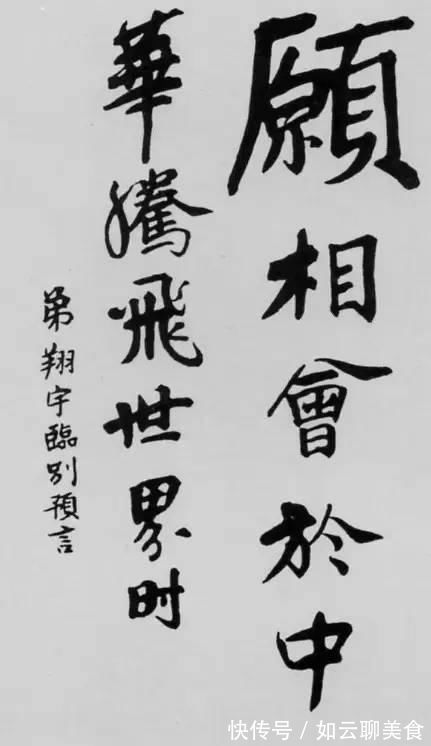 願相會於中
華騰飛世界时
弟翔宇臨别預言
快传号/如云聊美食